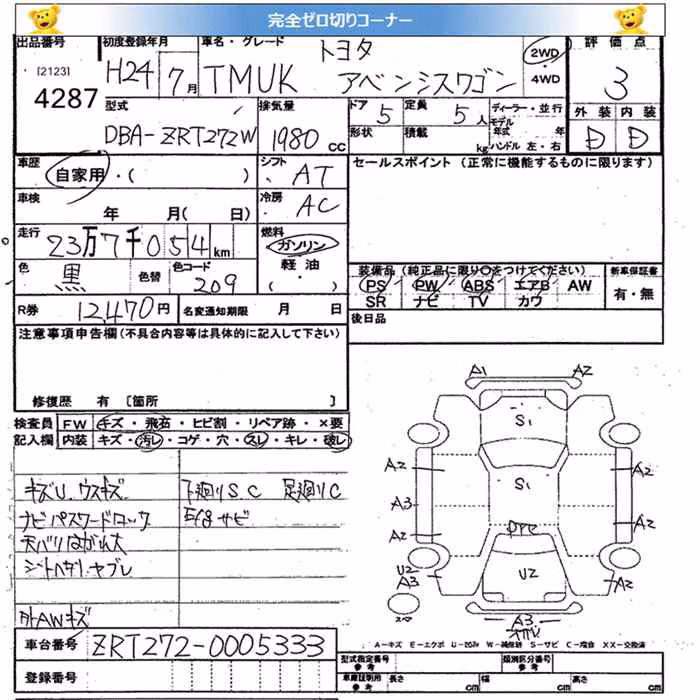 完全ゼロ切りコーナー
出品番号 初度登録年月 車名・グレード トヨタ 2WD ・ 4WD 評価点
[2123] 4287 H24 7月 TMUK アベンシスワゴン 3
型式 DBA-ZRT272W 排気量 1980 cc ドア 5 定員 5人 ディーラー・並行 外装 内装
形状 積載 kg モデル年式 年 ハンドル 左・右 D D
車歴 自家用・( ) シフト AT セールスポイント (正常に機能するものに限ります)
車検 年 月( 日) 冷房 AC
走行 23万7千054km 燃料 ガソリン
色 黒 色替 色コード 209 軽油 ・( )・
装備品 (純正品に限り○をつけてください) 新車保証書
PS PW ABS エアB AW 有・無
SR ナビ TV カワ
R券 12,470円 名変通知期限 月 日 後日品
注意事項申告欄 (不具合内容等は具体的に記入して下さい)
修復歴 有 [箇所 ]
検査員 FW キズ・飛石・ヒビ割・リペア跡・×要
記入欄 内装 キズ・汚レ・コゲ・穴・スレ・キレ・破レ
キズU. ウスキズ 下廻りS.C 足廻りC
ナビパスワードロック サビ
天バリはがれ大
シートヘタリ・ヤブレ
外AWキズ
車台番号 ZRT272-0005333
登録番号
A1 A2
S1
A2 S1 A2
A3
A2 A2
U2 A3 U2 A2
スペア A3
A-キズ E-エクボ U-凹み W-補修跡 S-サビ C-腐食 XX-交換済
型式指定番号 参考 類別区分番号 参考
車庫証明用 参考 長さ cm 幅 cm 高さ cm